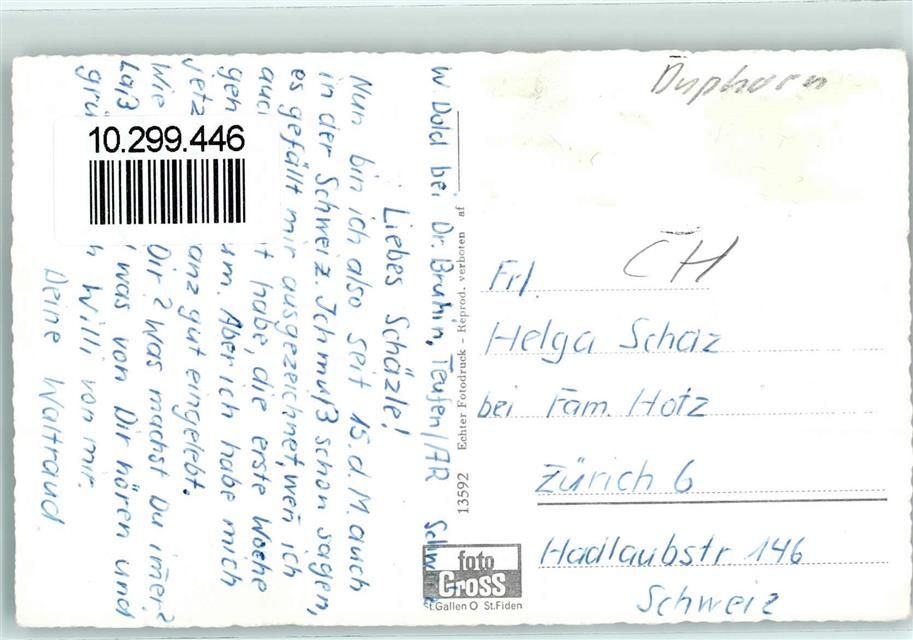 Liebes Schäzle!
Nun bin ich also seit 15. d. M. auch
in der Schweiz. Ich muß schon sagen,
es gefällt mir ausgezeichnet, wen̄ ich
auch habe, die erste Woche
gen um. Aber ich habe mich
jetz anz gut eingelebt.
Wie Dir? Was machst Du im̄er?
Laß was von Dir hören und
grü Willi von mir.
Deine Waltraud
W. Dold bei Dr. Bruhin, Teufen/AR
10.299.446
Echter Fotodruck - Reprod. verboten af
13592
foto
GROSS
St.Gallen O St.Fiden
Duphorn
CH
Frl.
Helga Schäz
bei Fam. Hotz
Zürich 6
Hadlaubstr 146
Schweiz